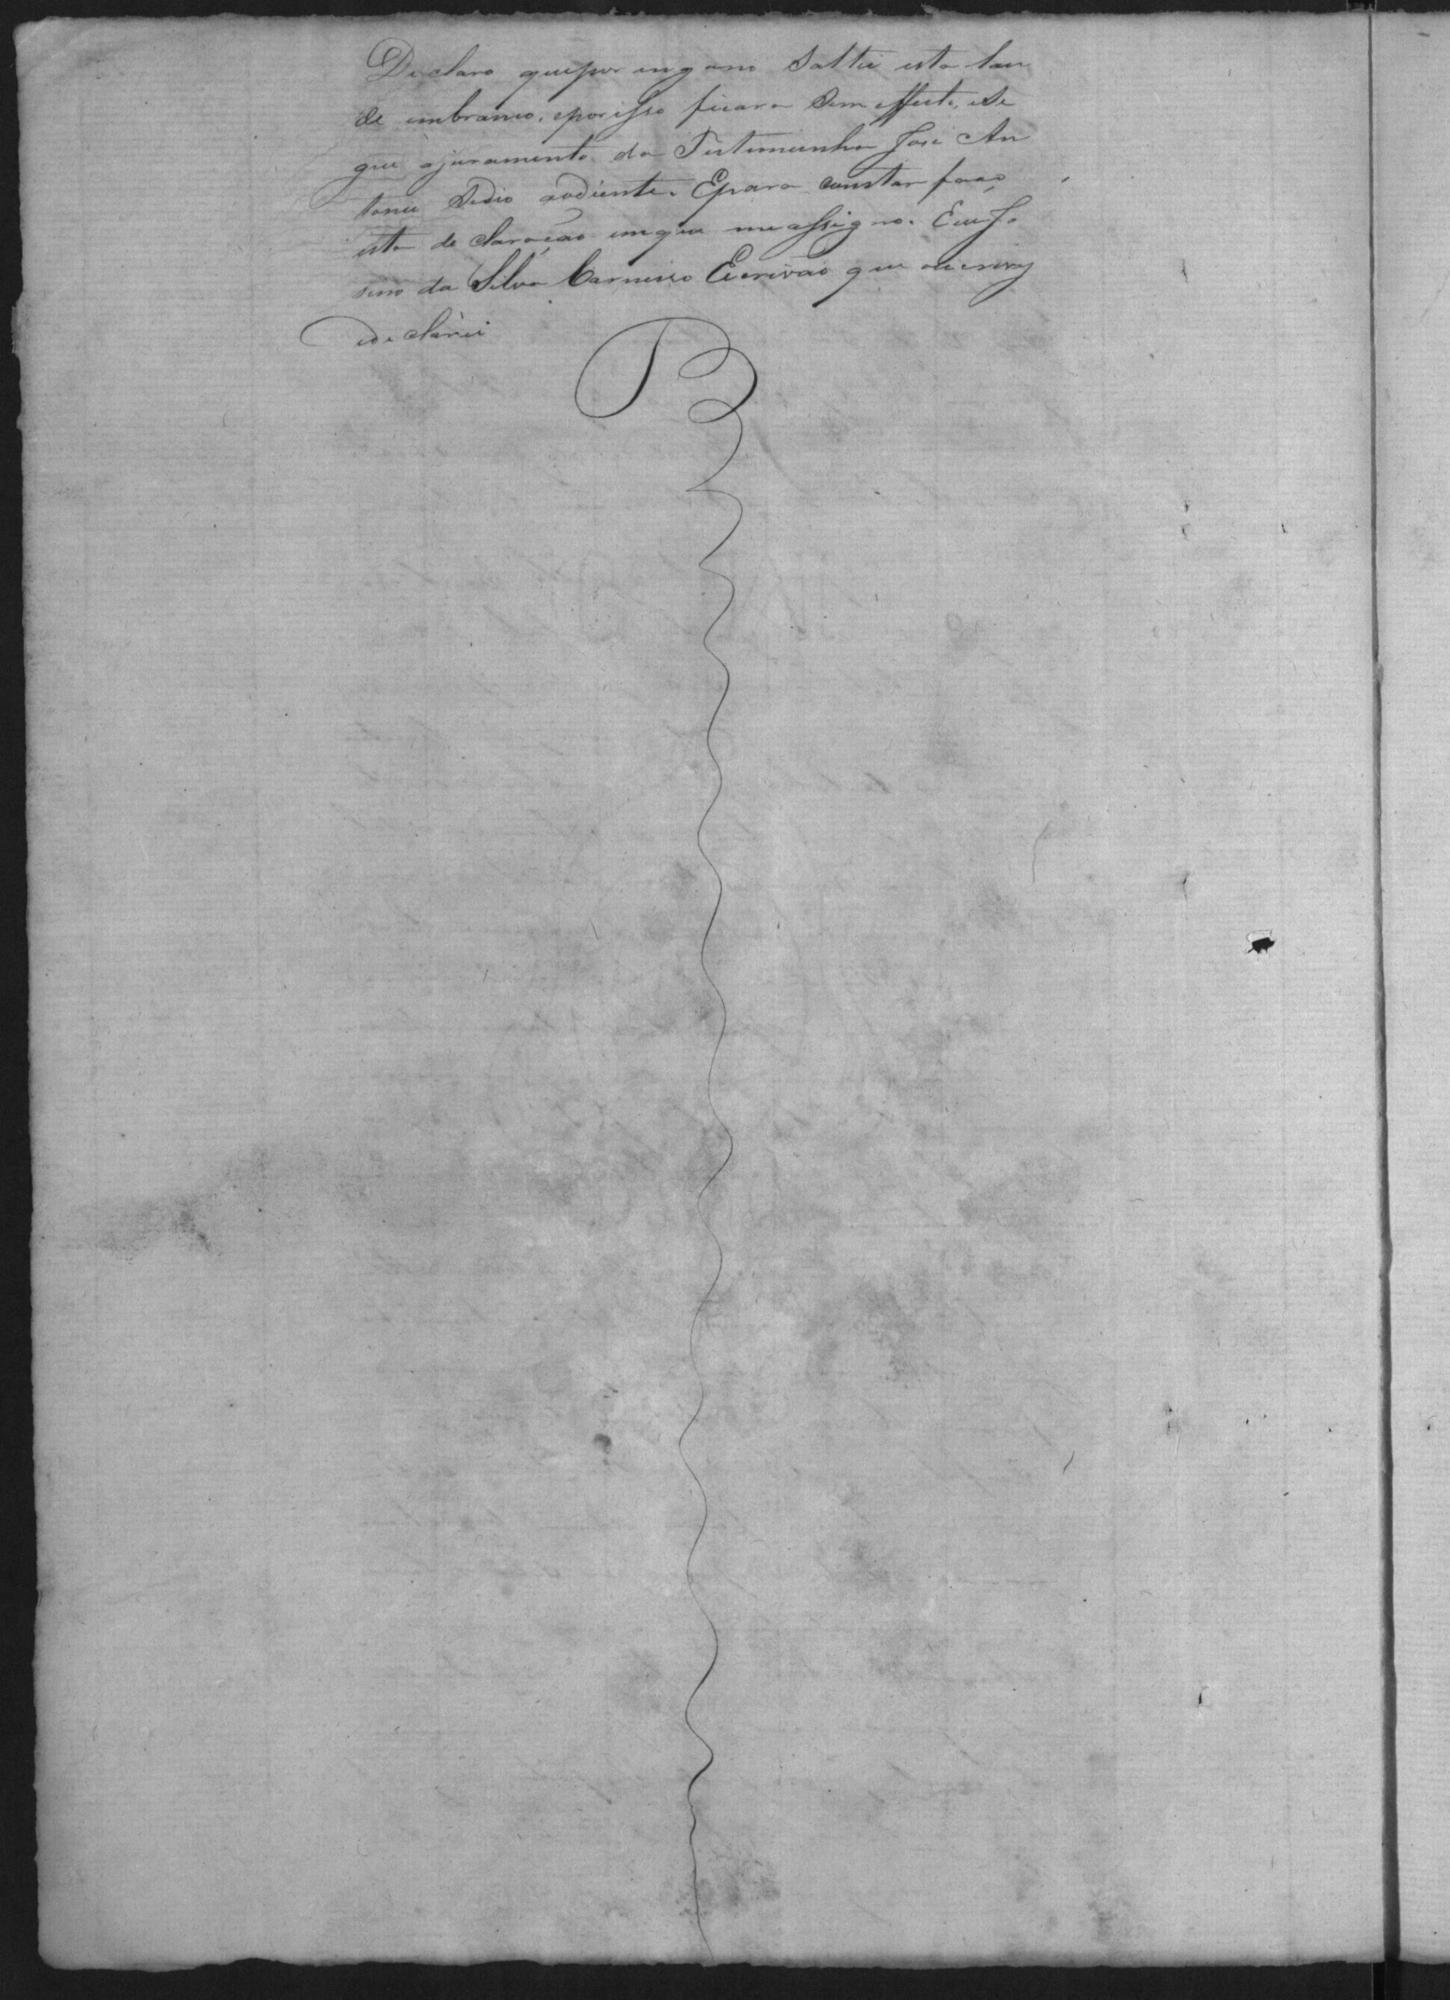 Declaro que por engano saltei esta lau
de embranco, eporisso ficara sem effeito, e se
gue ojuramento da Testemunha José An
tonio adiente. Epara constar faço
esta declaração emque meassigno. Eu Jo
sino da Silva Carneiro Escrivão que escrevy
edeclarei